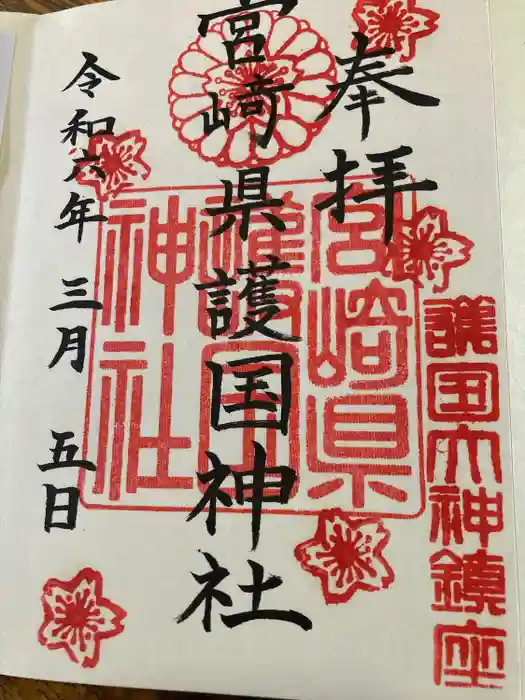 護国大神鎮座
奉拝
宮崎県護国神社
宮崎県
護国
神社
令和六年 三月 五日